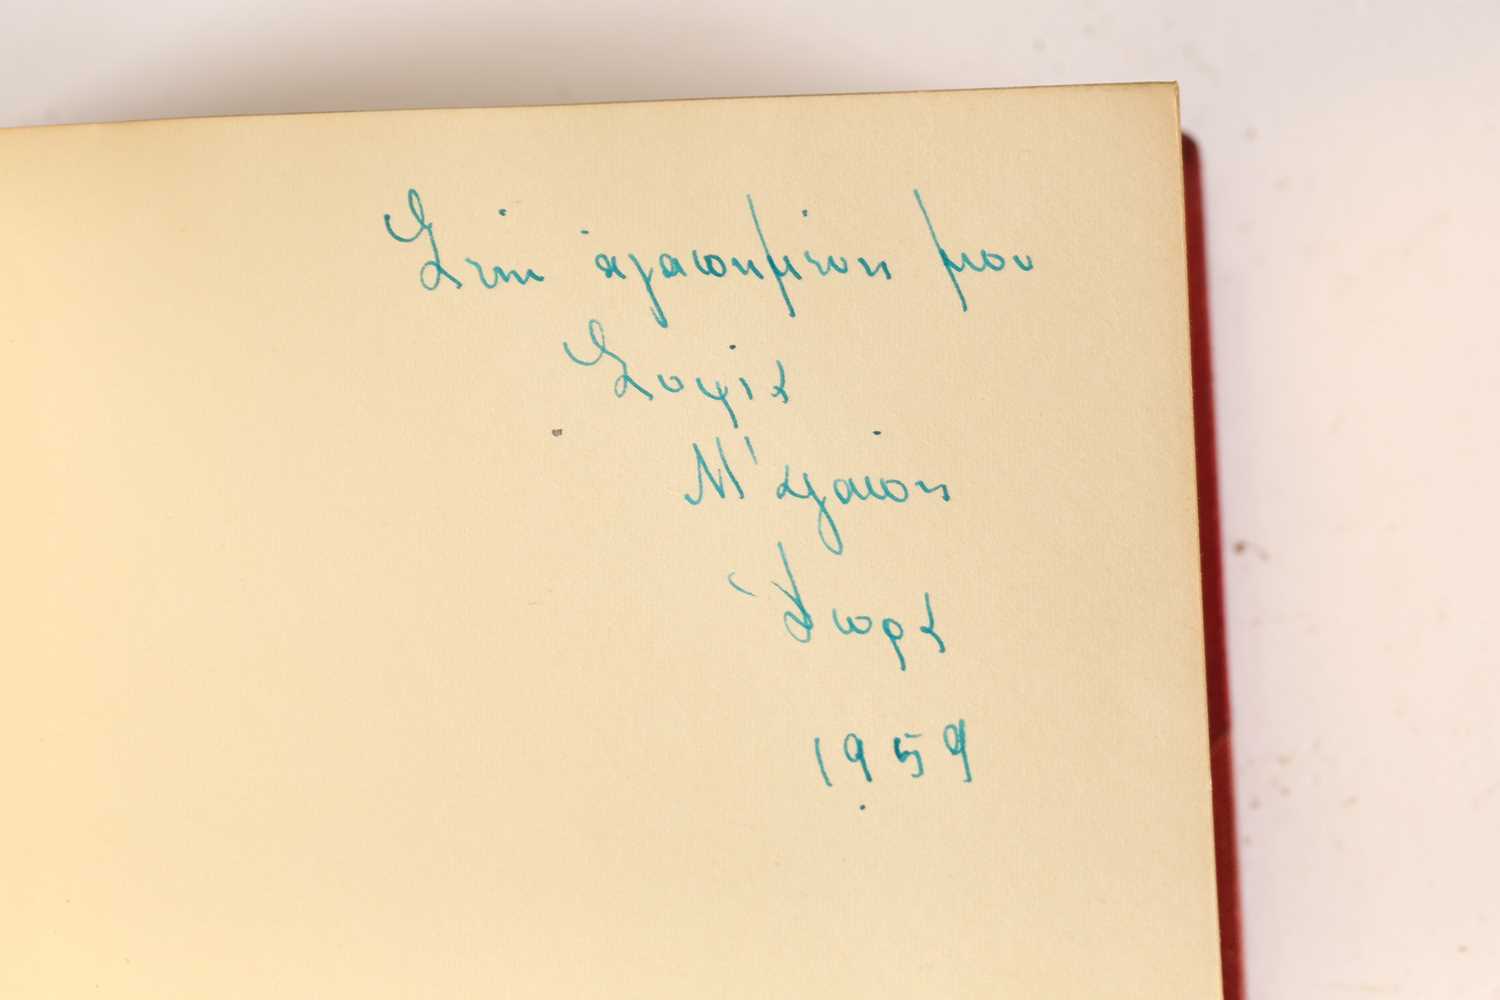 Στὴν ἀγαπημένη μου
Σοφία
Μ' ἀγάπη
Δώρα
1959